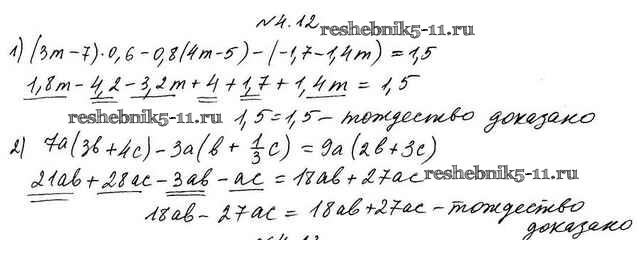 №4.12
reshebnik5-11.ru
1) (3m-7)·0,6-0,8(4m-5)-(-1,7-1,4m)=1,5
1,8m-4,2-3,2m+4+1,7+1,4m=1,5
reshebnik5-11.ru
1,5=1,5-тождество доказано
2) 7a(3b+4c)-3a(b+1/3c)=9a(2b+3c)
21ab+28ac-3ab-ac=18ab+27ac
reshebnik5-11.ru
18ab-27ac=18ab+27ac-тождество
доказано